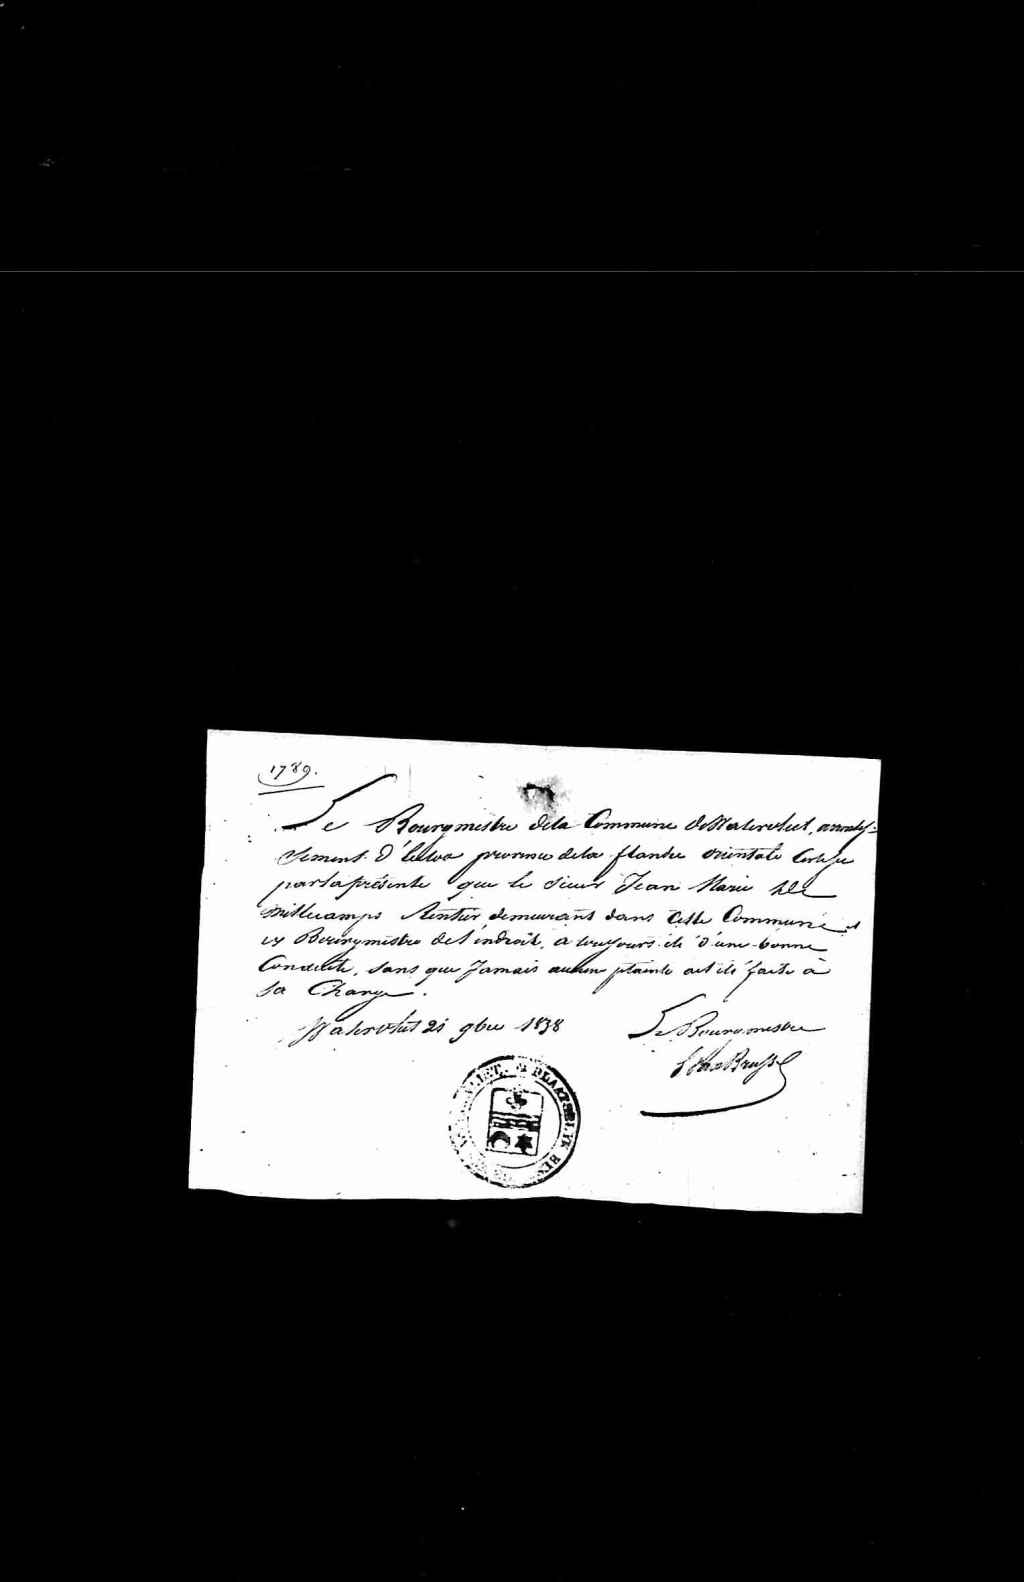 1789.
Le Bourgmestre dela Commune de Watervliet, arrondis=
sement d'Eecloo province dela flandre orientale Certifie
par la présente que le Sieur Jean Marie De
Millecamps Rentier demeurant dans Cette Commune et
ex Bourgmestre de l'indroit, a toujours été d'une bonne
Conduite, sans que Jamais aucun plainte ait été faite à
sa Charge.
Watervliet 21 9bre 1838
Le Bourgmestre
Van Brussel
PLAATSELYK BES
VLIET.